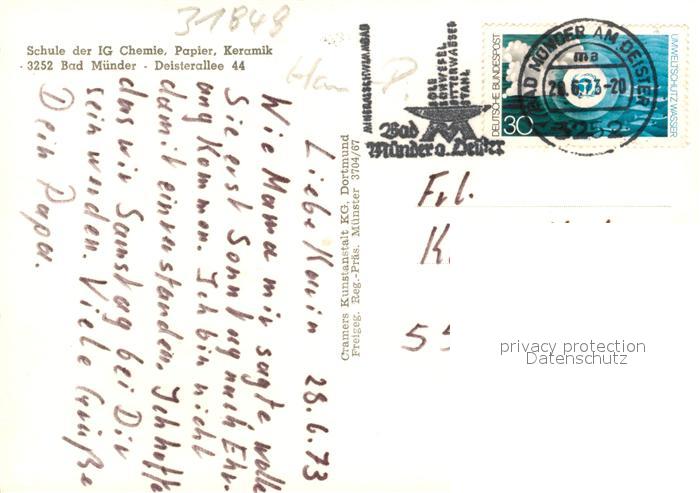 31848
Schule der IG Chemie, Papier, Keramik
· 3252 Bad Münder · Deisterallee 44
Liebe Karin 28.6.73
Wie Mama mir sagte wolle
Sie erst Sonntag nach Ehr.
ang kommen. Ich bin nicht
damit einverstanden. Ich hoffe
das wir Samstag bei Dir
sein werden. Viele Grüße
Dein Papa.
Cramers Kunstanstalt KG, Dortmund
Freigeg. Reg.-Präs. Münster 3704/67
MINERALSCHWIMMBAD
SOLE
SCHWEFEL
BITTERWASSER
STAHL
Bad
Münder a. Deister
DEUTSCHE BUNDESPOST
30
UMWELTSCHUTZ WASSER
BAD MÜNDER AM DEISTER
ma
28.6.73-20
3252
Frl.
K.
55
privacy protection
Datenschutz